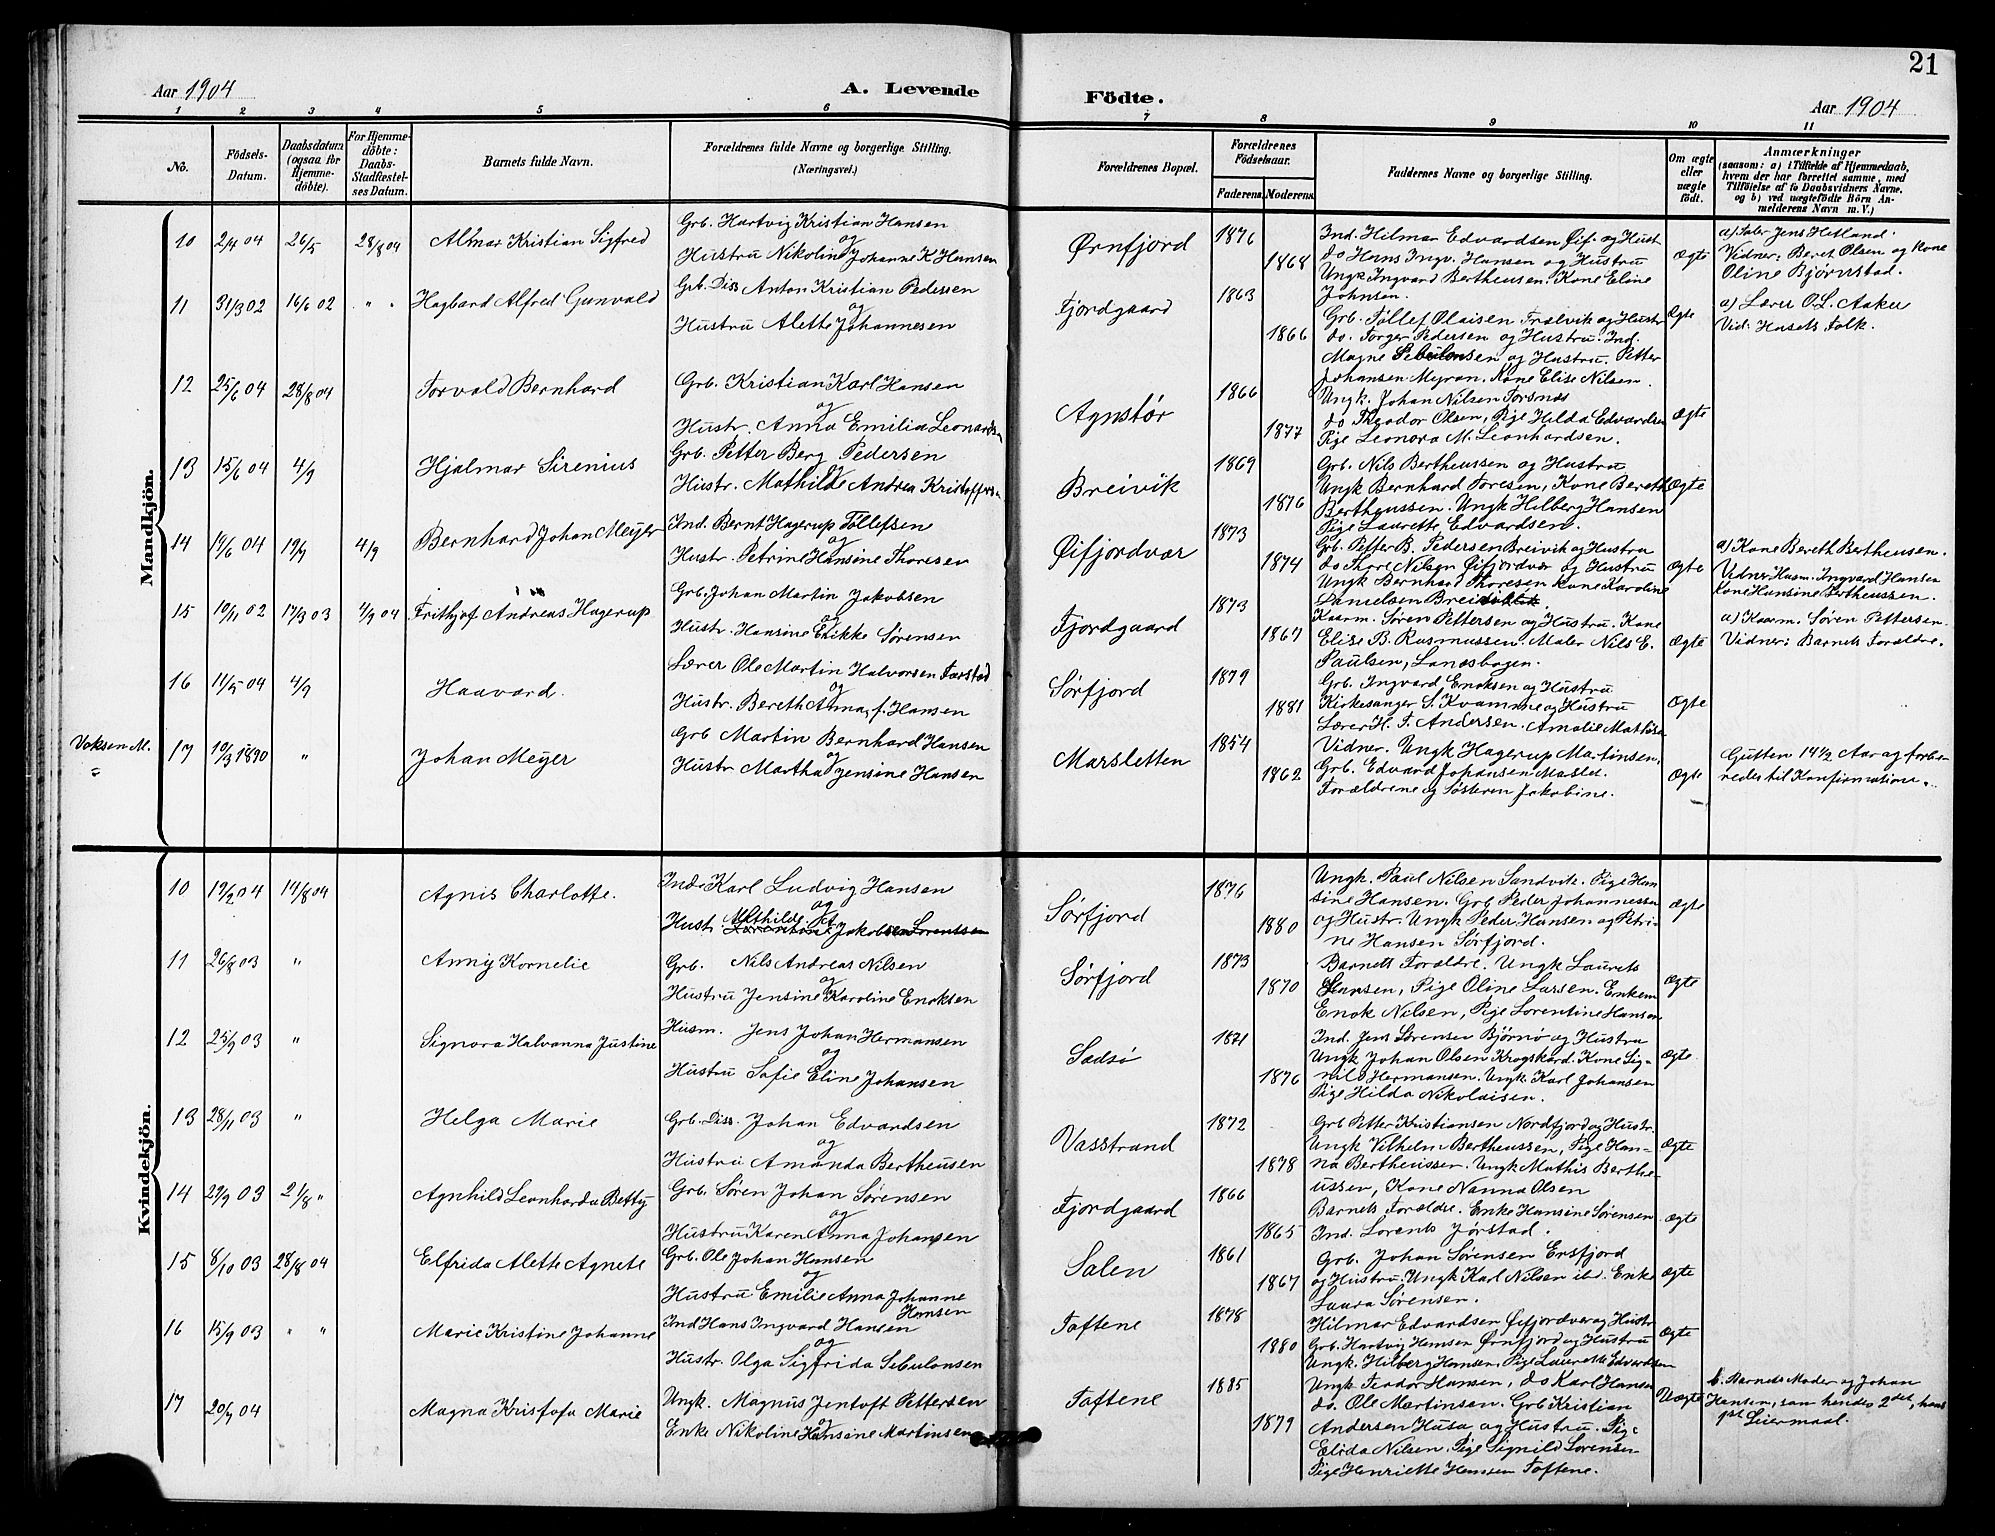 21
Aar 1904
A. Levende
Födte.
Aar 1904
1 2 3 4 5 6 7 8 9 10 11
No.
Födsels-
Datum.
Daabsdatum
(ogsaa for
Hjemme-
döbte).
For Hjemme-
döbte:
Daabs-
Stadfæstel-
ses Datum.
Barnets fulde Navn.
Forældrenes fulde Navne og borgerlige Stilling.
(Næringsvei.)
Forældrenes Bopæl.
Forældrenes
Födselsaar.
Faderens. Moderens.
Faddernes Navne og borgerlige Stilling.
Om ægte
eller
uægte
födt.
Anmærkninger
(saasom: a) i Tilfælde af Hjemmedaab,
hvem der har forrettet samme, med
Tilföielse af to Daabsvidners Navne,
og b) ved uægtefödte Börn An-
melderens Navn m. V.)
Mandkjön.
10 2/4 04 26/5 28/8 04 Almar Kristian Sigfred
Grb. Hartvig Kristian Hansen
og
Hustru Nikoline Johanne K Hansen
Ørnfjord
1876
1868
Ind. Hilmar Edvardsen Øif. og Hust
do Hans Ingv. Hansen og Hustru
Ungk. Ingvard Bertheussen. Kone Eline
Johnsen.
Ægte
a) Jens Hetland.
Vidner: Beret Olsen og Kone
Oline Bjørnstad.
11 31/3 02 16/6 02 " " Hagbard Alfred Gunvald
Grb. Diss Anton Kristian Pedersen
og
Hustru Alette Johannesen
Fjordgaard
1863
1866
Grb. Tollef Olaisen Trælvik og Hustr
do. Torger Pedersen og Hustru. Ind.
Magne Sebulonsen og Hustru. Petter
Johansen Myran. Kone Elise Nilsen.
Ægte
a) Lærer O. L. Aaker
Vid: Husets Folk.
12 25/6 04 28/8 04 Torvald Bernhard
Grb. Kristian Karl Hansen
og
Hustr. Anna Emilia Leonards
Agnstør
1866
1877
Ungk. Johan Nilsen Torsnes
do Theodor Olsen, Pige Hilda Edvardsen
Pige Leonora M. Leonhardsen.
Ægte
13 15/6 04 4/9 Hjalmar Sirenius
Grb. Petter Berg Pedersen
og
Hustr. Mathilde Andrea Kristoffersen
Breivik
1869
1876
Grb. Nils Bertheussen og Hustru
Ungk Bernhard Toresen, Kone Bereth
Bertheussen. Ungk Hilberg Hansen
Pige Laurette Edvardsen.
Ægte
14 19/6 04 19/7 4/9 Bernhard Johan Meyer
Ind. Bernt Hagerup Tollefsen
og
Hustr. Petrine Hansine Thoresen
Øifjordvær
1873
1874
Grb. Petter B. Pedersen Breivik og Hustru
do Thore Nilsen Øifjordvær og Hustru
Ungk Bernhard Thoresen Kone Karoline
Danielsen
Ægte
a) Kone Bereth Bertheusen.
Vidner Husm. Ingvard Hansen
Kone Hansine Bertheussen.
15 10/11 02 17/3 03 4/9 04 Frithjof Andreas Hagerup
Grb. Johan Martin Jakobsen
og
Hustr. Hansine Erikke Sørensen
Fjordgaard
1873
1867
Kaarm. Søren Pettersen og Hustru. Kone
Elise B. Rasmussen. Maler Nils E.
Paulsen,
Ægte
a) Kaarm. Søren Pettersen.
Vidner: Barnets Forældre.
16 11/5 04 4/9 Haavard.
Lærer Ole Martin Halvorsen Farstad
og
Hustr. Bereth Anna, f. Hansen
Sørfjord
1879
1881
Grb. Ingvard Enoksen og Hustru
Kirkesanger S. Kvamme og Hustru
Lærer H. F. Andersen. Amalie
Ægte
Voksen M.
17 19/3 1890 " Johan Meyer
Grb Martin Bernhard Hansen
og
Hustr Martha Jensine Hansen
Marsletten
1854
1862
Vidner. Ungk Hagerup Martinsen,
Grb. Edvard Johansen
Forældrene og Søsteren Jakobine.
Ægte
Gutten 14½ Aar og forbe-
redes til Konfirmation.
Kvindekjön.
10 19/2 04 17/8 04 Agnis Charlotte.
Inds Karl Ludvig Hansen
og
Hust. Mathilde Jakobsen
Sørfjord
1876
1880
Ungk. Paul Nilsen Sandvik. Pige Han
sine Hansen. Grb Peder Johannessen
og Hustr. Ungk Peder Hansen og Petri-
ne Hansen Sørfjord.
ægte
11 26/8 03 " Anny Kornelie
Grb. Nils Andreas Nilsen
og
Hustru Jensine Karoline Enoksen
Sørfjord
1873
1870
Barnets Forældre. Ungk Laurets
Hansen, Pige Oline Larsen. Enkem
Enok Nilsen, Pige Lorentine Hansen
Ægte
12 25/9 03 " Signora Halvanna Justine
Husm. Jens Johan Hermansen
og
Hustru Sofie Eline Johansen
Sadsø
1871
1876
Ind. Jens Sørensen Bjørnø og Hustru
Ungk Johan Olsen Krogskard. Kone Sig-
nild Hermansen. Ungk. Karl Johansen
Pige Hilda Nikolaisen.
Ægte
13 28/11 03 " Helga Marie
Grb. Diss. Johan Edvardsen
og
Hustru Amanda Bertheusen
Vasstrand
1872
1878
Grb Petter Kristiansen Nordfjord og Hustr.
Ungk Vilhelm Bertheussen, Pige Han-
na Bertheussen. Ungk Mathis Berthe-
ussen, Kone Nanna Olsen
Ægte
14 29/9 03 21/8 " Agnhild Leonharda Betty
Grb. Søren Johan Sørensen
og
Hustru Karen Anna Johansen
Fjordgaard
1866
1865
Barnets Forældre. Enke Hansine Sørensen
Ind. Lorents Jørstad.
Ægte
15 8/10 03 28/8 04 Elfrida Alette Agnete
Grb. Ole Johan Hansen
og
Hustru Emilie Anna Johanne
Hansen
Salen
1861
1867
Grb. Johan Sørensen Ersfjord
og Hustru. Ungk Karl Nilsen ibd. Enke
Laura Sørensen.
Ægte
16 15/9 03 " " Marie Kristine Johanne
Ind Hans Ingvard Hansen
og
Hustr. Olga Sigfrida Sebulonsen
Toftene
1878
1880
Hilmar Edvardsen Øifjordvær og Hustr
Grb. Hartvig Hansen Ørnfjord og Hustru
Ungk. Hilberg Hansen, Pige Laurette Edvardsen
Ægte
17 20/7 04 Magna Kristofa Marie
Ungk. Magnus Jentoft Pettersen
og
Enke Nikoline Hansine Martinsen
Toftene
1885
1879
Ungk Teodor Hansen, do Karl Hansen
do. Ole Martinsen. Grb Kristian
Andersen Husø og Hustru. Pige
Elida Nilsen. Pige Signild Sørensen
Pige Henriette Hansen Toftene.
Uægte
b. Barnets Moder og Johan
Hansen, som hendes 2det, hans
1ste Leiermaal.